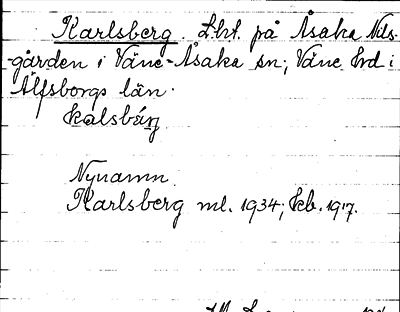 Karlsberg. Lht. på Åsaka Nils-
gården i Väne-Åsaka sn; Väne hd i
Älfsborgs län.
kalsbärj
Nynamn.
Karlsberg ml. 1934; kb. 1917.